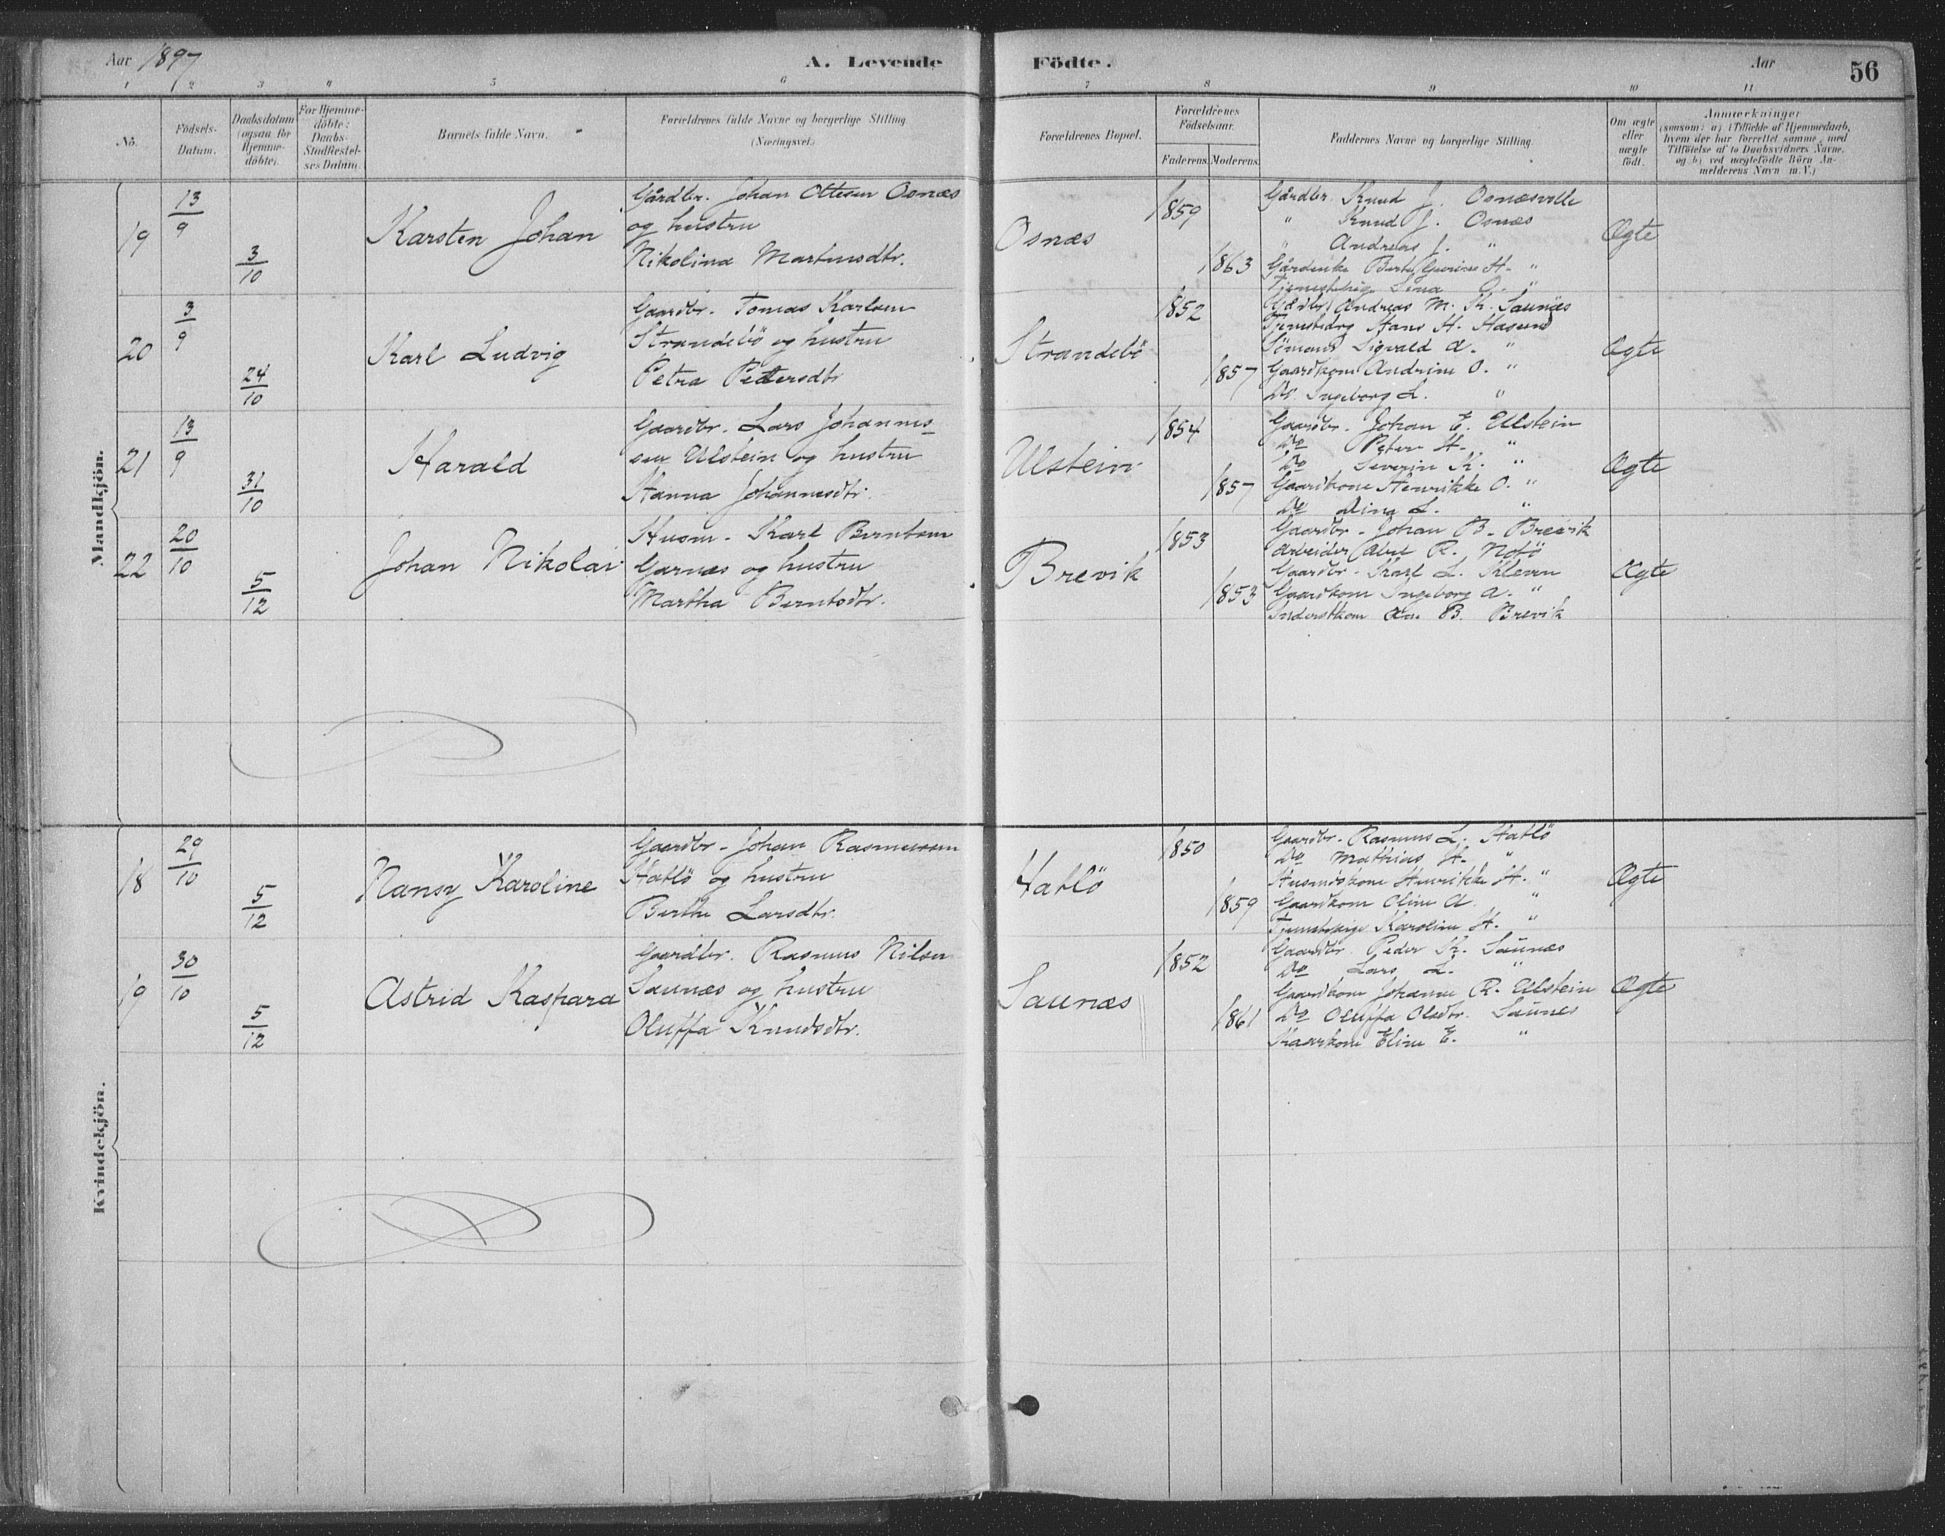 Aar 1897
A. Levende Födte.
Aar
56
1 2 3 4 5 6 7 8 9 10 11
No.
Födsels-Datum.
Daabsdatum (ogsaa for Hjemme-döbte).
For Hjemme-döbte: Daabs-Stadfæstel-ses Datum.
Barnets fulde Navn.
Forældrenes fulde Navne og borgerlige Stilling (Næringsvei.)
Forældrenes Bopæl.
Forældrenes Födselsaar.
Faderens. Moderens.
Faddernes Navne og borgerlige Stilling.
Om ægte eller uægte födt.
Anmærkninger
(saasom: a) i Tilfælde af Hjemmedaab, hvem der har forrettet samme, med Tilföielse af to Daabsvidners Navne, og b) ved uægtefödte Börn Anmelderens Navn m. V.)
Mandkjön.
19 13/9 3/10 Karsten Johan
Gårdbr. Johan Ottesen Osnæs
og hustru
Nikolina Martinusdtr.
Osnæs 1859 1863
Gårdbr. Knud J. Osnæsvolle
" Knud J. Osnæs
" Andreas J. "
Gårdenke Berte H. "
Lina "
Ægte
20 3/9 24/10 Karl Ludvig
Gaardbr. Tomas Karlsen
Strandebö og hustru
Petra Pettersdtr
Strandebö 1852 1857
Gardbr. Andreas M. K. Saunæs
Hans H. Hasund
Sömand Sigvald A. "
Gaardkone Andrine O. "
Do. Ingeborg L. "
Ægte
21 13/9 31/10 Harald
Gaardbr. Lars Johannes=
sen Ulstein og hustru
Hanna Johannesdtr.
Ulstein 1854 1857
Gaardbr. Johan E. Ulstein
Do Peter H. "
Do Severin K. "
Gaardkone Henrikke O. "
Do Dina L. "
Ægte
22 20/10 5/12 Johan Nikolai
Husm. Karl Berntsen
Garnes og hustru
Martha Berntsdtr.
Brevik 1853 1853
Gaardbr. Johan B. Brevik
Arbeider R. Notö
Gaardbr. Karl L. Kleven
Gaardkone Ingeborg A. "
Inderstkone Ane B. Brevik
Ægte
Kvindekjön.
18 29/10 5/12 Nansy Karoline
Gaardbr. Johan Rasmussen
Hatlö og hustru
Berthe Larsdtr.
Hatlö 1850 1859
Gaardbr. Rasmus L. Hatlö
Do Mathias H. "
Husmdskone Henrikke H. "
Gaardkone Oline A. "
Tjenestepige Karoline H. "
Ægte
19 30/10 5/12 Astrid Kaspara
Gaardbr. Rasmus Nilsen
Saunæs og hustru
Oluffa Knudsdtr.
Saunæs 1852 1861
Gaardbr. Peder K. Saunæs
Do Lars L. "
Gaardkone Johanne R. Ulstein
Do Oluffa Olsdtr. Saunes
Eline E. "
Ægte